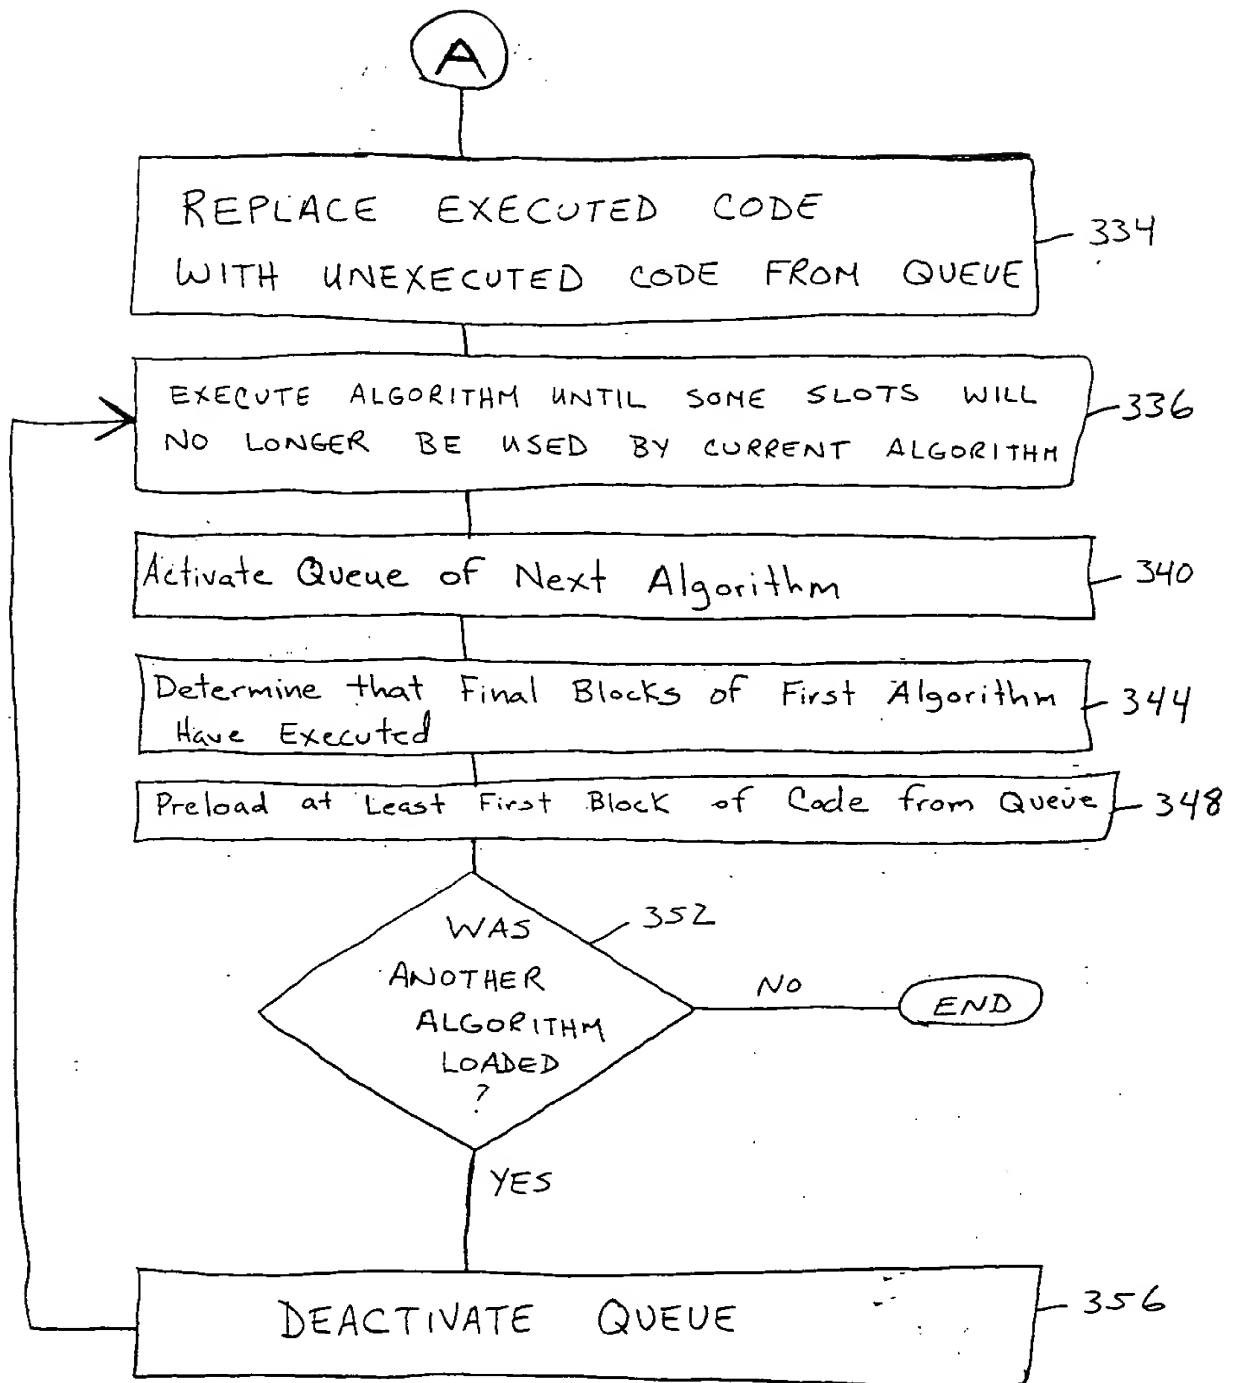 A
REPLACE EXECUTED CODE
WITH UNEXECUTED CODE FROM QUEUE
334
EXECUTE ALGORITHM UNTIL SOME SLOTS WILL
NO LONGER BE USED BY CURRENT ALGORITHM
336
Activate Queue of Next Algorithm
340
Determine that Final Blocks of First Algorithm
Have Executed
344
Preload at Least First Block of Code from Queue
348
WAS
ANOTHER
ALGORITHM
LOADED
?
352
NO
END
YES
DEACTIVATE QUEUE
356